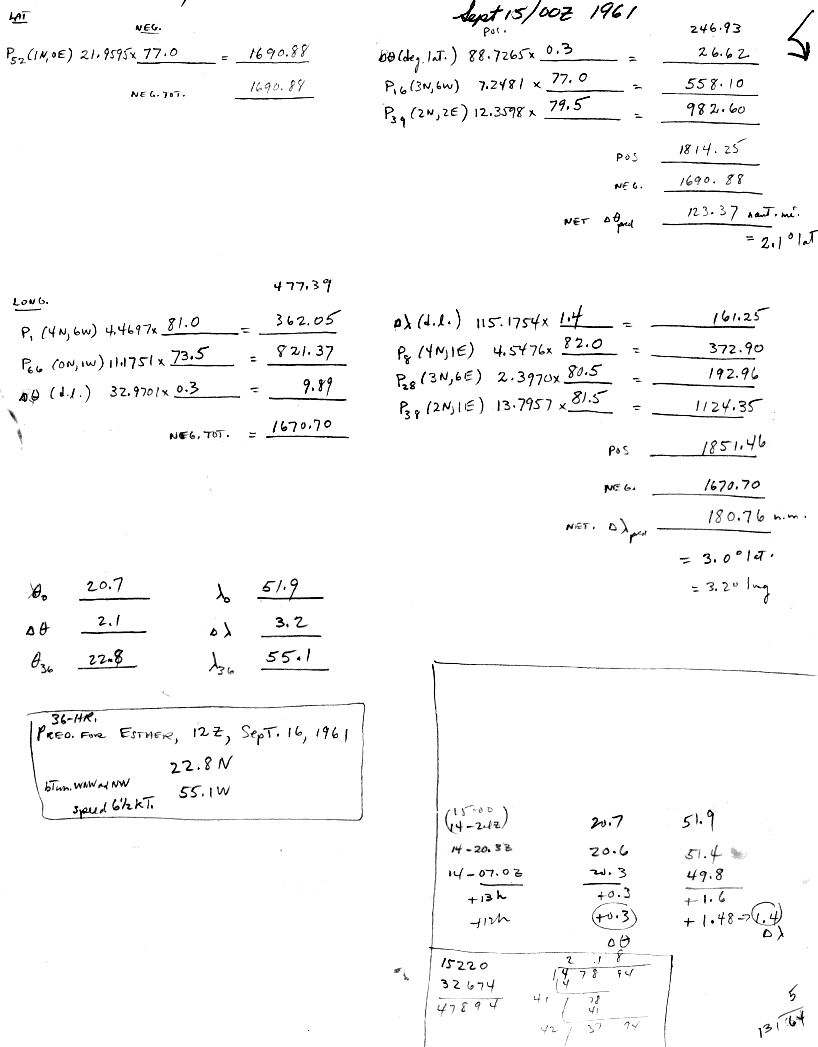 Sept 15/00Z 1961
LAT
NEG.
P52 (1N, 0E) 21.9595 x 77.0 = 1690.88
NEG. TOT. 1690.88
POS. 246.93
Δθ (deg. lat.) 88.7265 x 0.3 = 26.62
P16 (3N, 6W) 7.2481 x 77.0 = 558.10
P39 (2N, 2E) 12.3598 x 79.5 = 982.60
POS 1814.25
NEG. 1690.88
NET Δθ pred 123.37 naut. mi.
= 2.1° lat
LONG.
477.39
P1 (4N, 6W) 4.4697 x 81.0 = 362.05
P66 (0N, 1W) 11.1751 x 73.5 = 821.37
Δθ (d.l.) 32.9701 x 0.3 = 9.89
NEG. TOT. = 1670.70
Δλ (d.l.) 115.1754 x 1.4 = 161.25
P8 (4N, 1E) 4.5476 x 82.0 = 372.90
P28 (3N, 6E) 2.3970 x 80.5 = 192.96
P38 (2N, 1E) 13.7957 x 81.5 = 1124.35
POS 1851.46
NEG. 1670.70
NET. Δλ pred 180.76 n.m.
= 3.0° lat.
= 3.2° lng
θ0 20.7 λ0 51.9
Δθ 2.1 Δλ 3.2
θ36 22.8 λ36 55.1
36-HR.
PRED. FOR ESTHER, 12Z, SEPT. 16, 1961
22.8 N
btwn. WNW and NW 55.1 W
speed 6½ kT.
(15-00
14-24Z) 20.7 51.9
14-20.3Z 20.6 51.4
14-07.0Z 20.3 49.8
+13h +0.3 +1.6
+12h +0.3 +1.48→ 1.4
Δθ Δλ
15220 2 .1 8
32674 14 78 94
47894 4
41 78
41
42 37 94
5
13 64